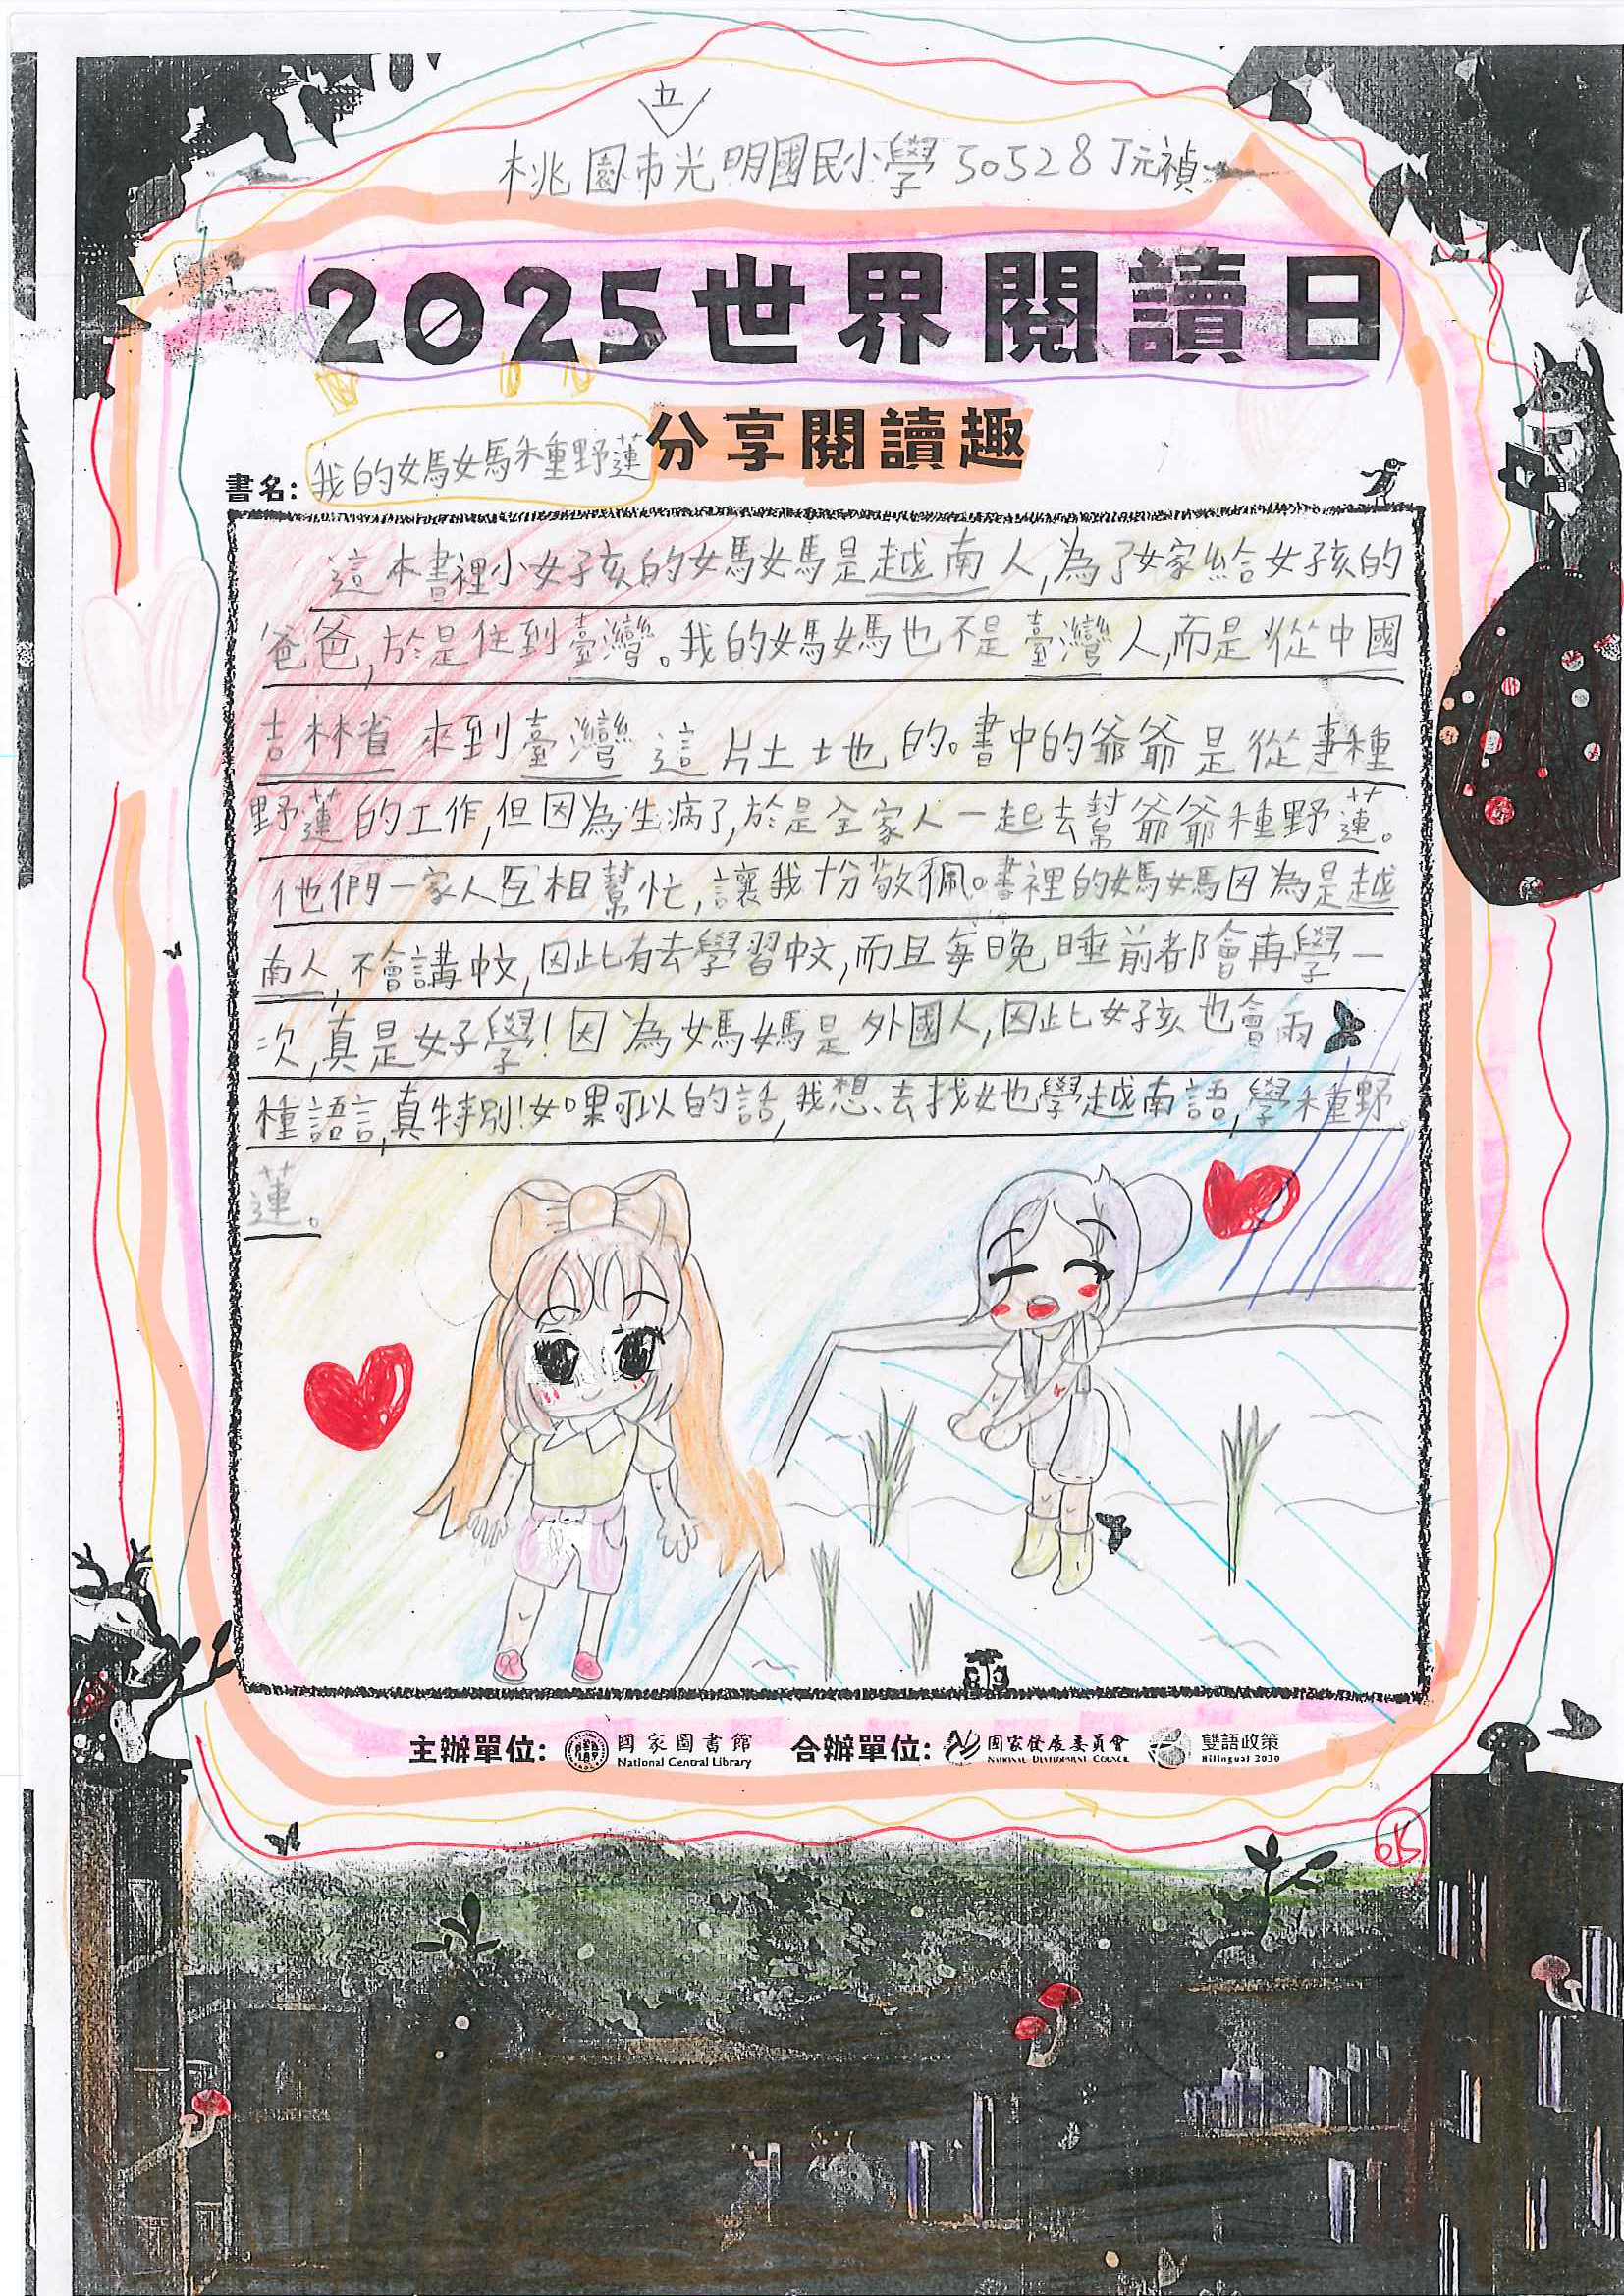 五
桃園市光明國民小學 50528 丁元禎
2025世界閱讀日
分享閱讀趣
書名: 我的媽媽種野蓮
這本書裡小女孩的媽媽是越南人,為了嫁給女孩的
爸爸,於是住到臺灣。我的媽媽也不是臺灣人,而是從中國
吉林省來到臺灣這片土地的。書中的爺爺是從事種
野蓮的工作,但因為生病了,於是全家人一起去幫爺爺種野蓮。
他們一家人互相幫忙,讓我十分敬佩。書裡的媽媽因為是越
南人,不會講中文,因此有去學習中文,而且每晚睡前都會再學一
次,真是好學!因為媽媽是外國人,因此女孩也會兩
種語言,真特別!如果可以的話,我想去找她學越南語,學種野
蓮。
主辦單位: 國家圖書館 National Central Library 合辦單位: 國家發展委員會 NATIONAL DEVELOPMENT COUNCIL 雙語政策 Bilingual 2030
OK